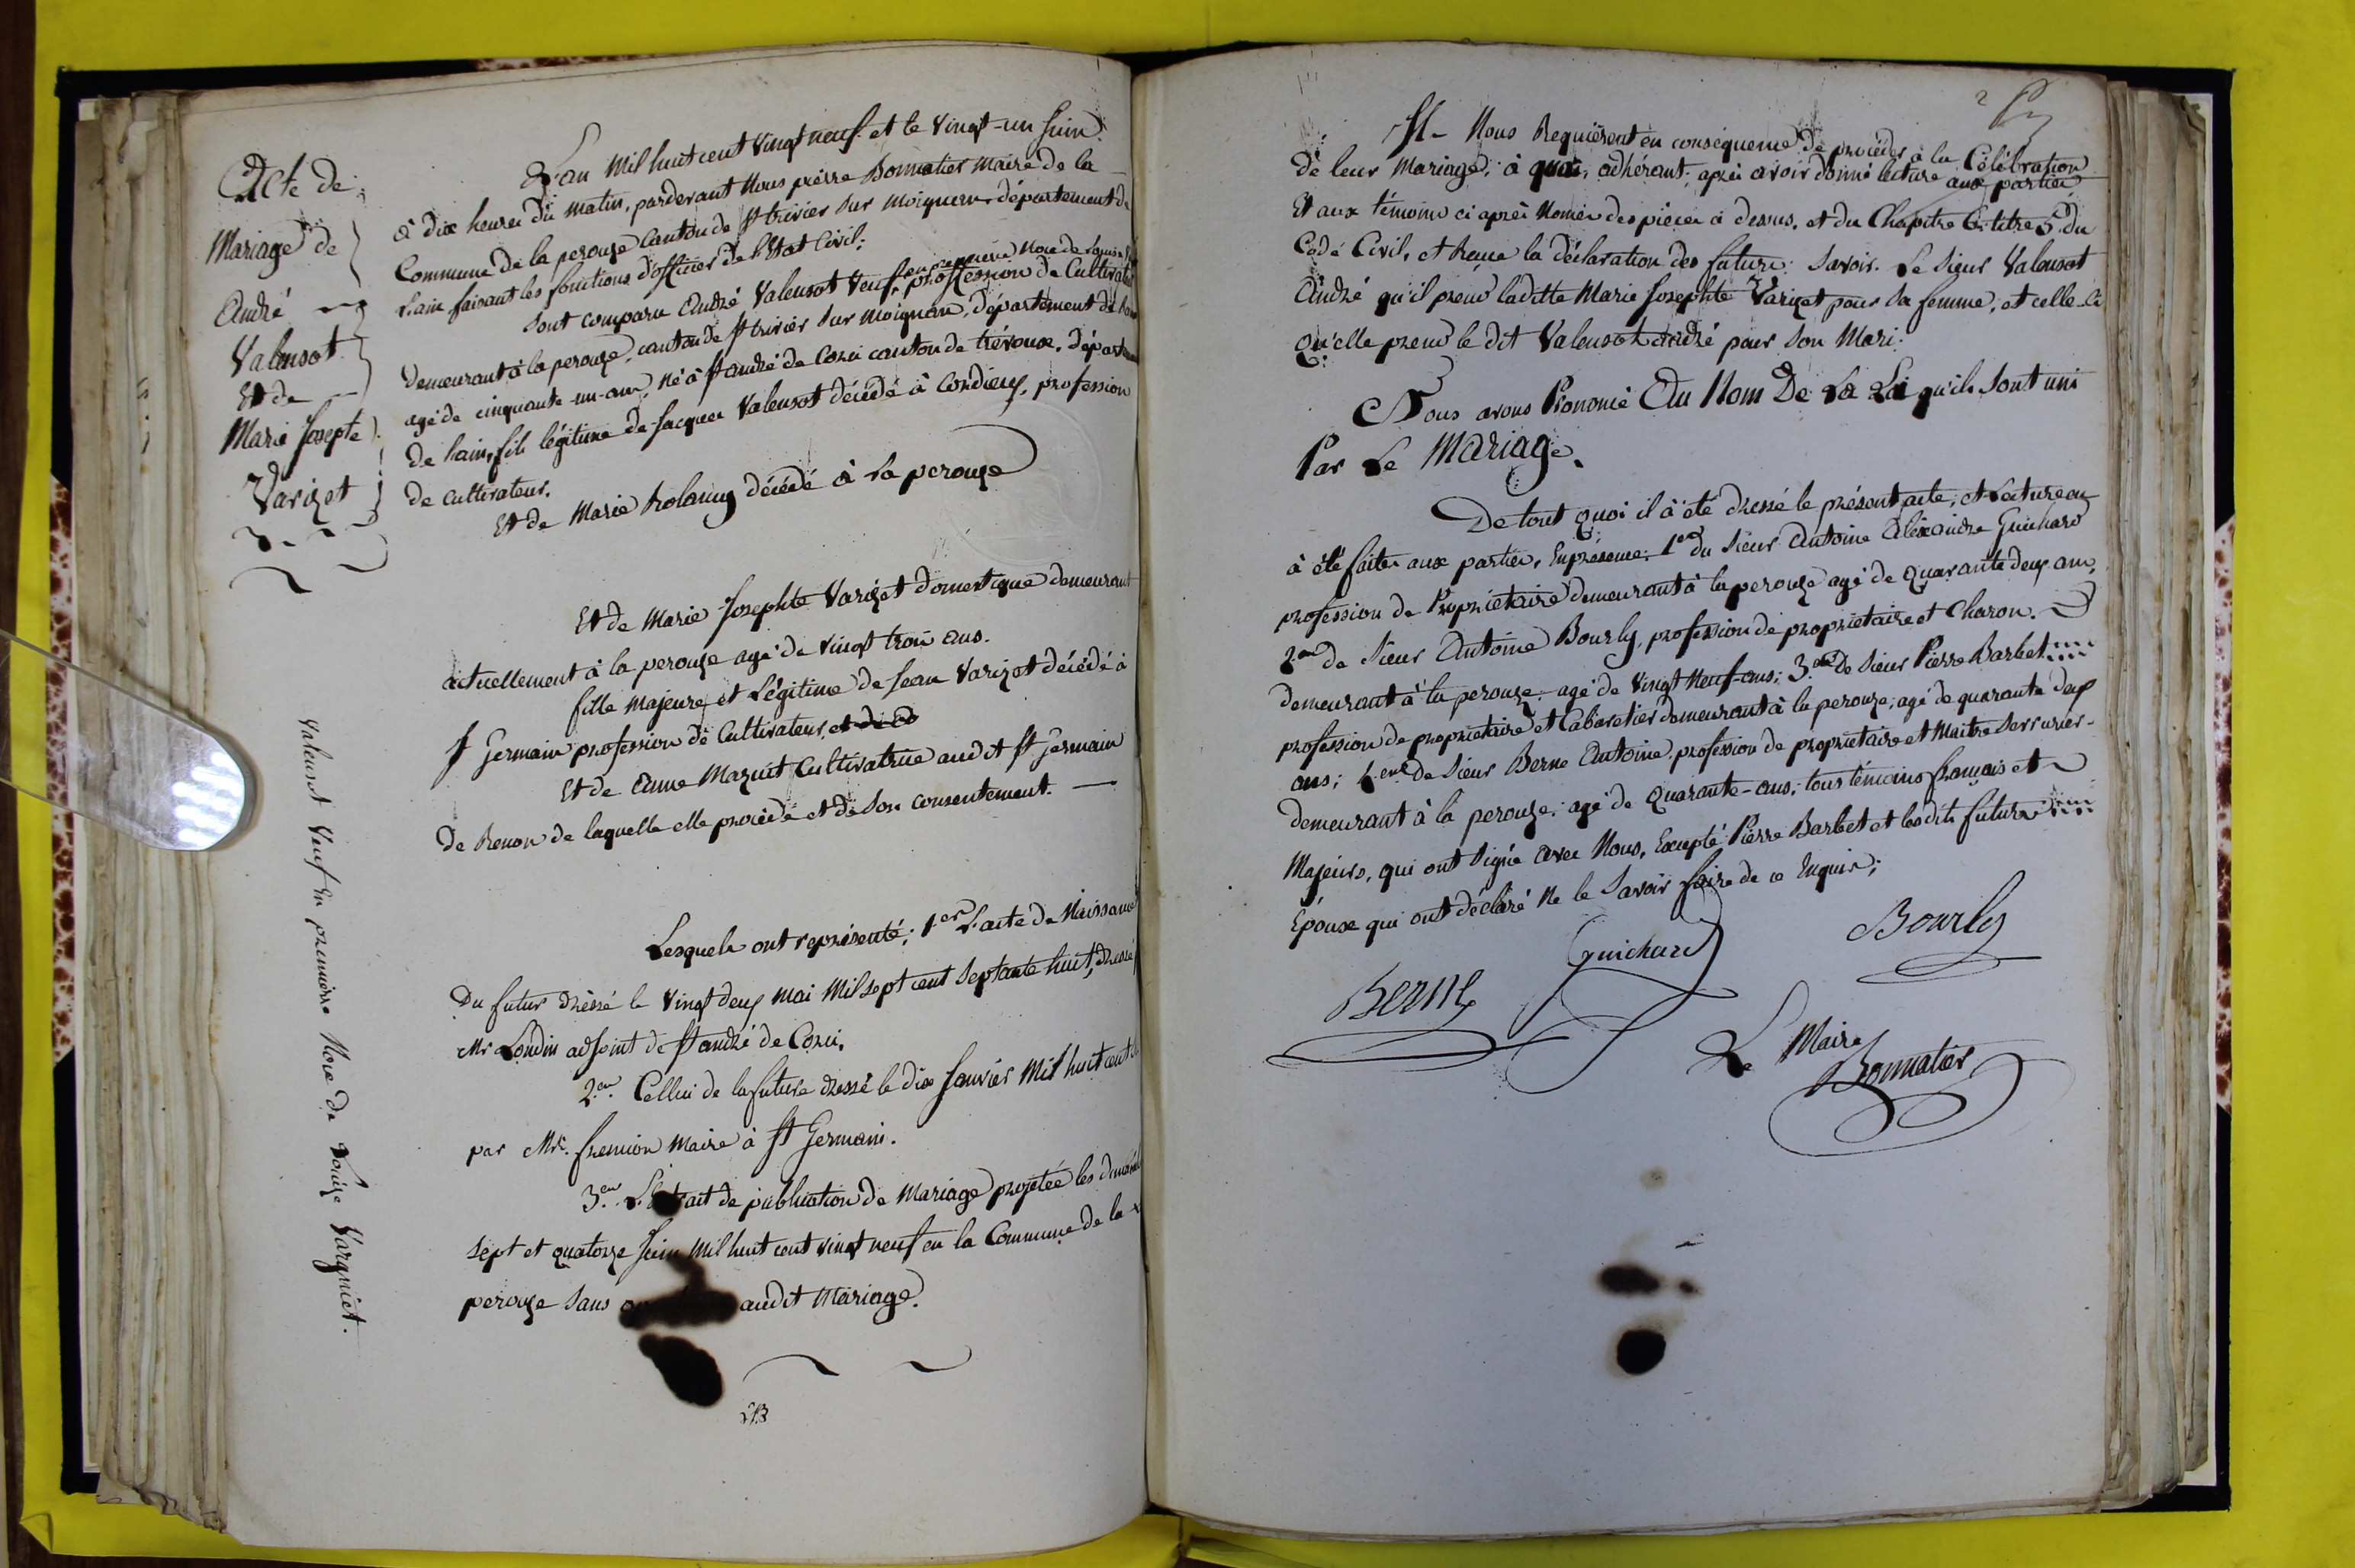 Acte de
Mariage de
André
Valensot
Et de
Marie Josepte
Varizet
Valensot Veuf En première Noce de Louise Varguiet.
L'an Mil huit cent Vingt neuf et le Vingt-un Juin
à dix heures du matin, pardevant Nous pierre Bonnatier Maire de la
Commune de la perouze Canton de St trivier sur moignan département de
L'ain faisant les fonctions d'officier de l'Etat Civil;
en première Noce de Louise
Sont comparu André Valensot Veuf, profession de Cultivateur
Demeurant à la perouze, canton de St trivier sur Moignan, département de
agé de cinquante-un-ans, Né à St andré de Corci canton de trévoux, départ
de Lain, fils légitime de Jacques Valensot décédé à Cordieux, profession
de cultivateur.
Et de Marie décédé à La perouze
Et de Marie Josephte Varizet domestique demeurant
actuellement à la perouze agé de vingt trois ans.
fille majeure et Légitime de Jean Varizet décédé à
St Germain profession de Cultivateur,
Et de Anne Mazuit Cultivatrice audit St Germain
de Renon de laquelle elle procède et de son consentement.
Lesquels ont représenté; 1er L'acte de Naissance
Du futur dressé le Vingt deux mai Mil sept cent Septante huit, dressé
Mr Londin adjoint de St andré de Corci.
2em Cellui de la future dressé le dix Janvier Mil huit cent
par Mr. fremion Maire à St Germani.
3em de publication de Mariage projetée les
Sept et quatorze Juin Mil huit cent vingt neuf en la Commune de la
perouze sans audit Mariage.
2
Nous Requièrent en conséquence de procéder à la Célébration
de leur Mariage; à quoi, adhérant; après avoir donné lecture aux parties
Et aux témoins ci après Només des pièces ci dessus. et du Chapitre 6. titre 5. du
Code Civil, et Reçue la déclaration des futurs: Savoir. Le sieur Valensot
André qu'il prend laditte Marie Josephte Varizet pour sa femme, et celle-ci
Qu'elle prend le dit Valensot André pour son Mari.
Nous avons Prononcé Au Nom De La Loi qu'ils sont unis
Par Le Mariage.
De tout quoi il à été dressé le présent acte, et Lecture en
à été faite aux parties, En présence: 1er du Sieur Antoine Aléxandre Guichard
profession de Propriétaire demeurant à la perouze agé de Quarante deux ans,
2em de Sieur Antoine Bourly, profession de propriétaire et Charon.
demeurant à la perouze. agé de Vingt Neuf-ans; 3em De Sieur Pierre Barbet
profession de propriétaire et Cabaretier demeurant à la perouze; agé de quarante deux
ans; 4.em de Sieur Berne Antoine, profession de propriétaire et Maitre Serrurier-
demeurant à la perouze. agé de Quarante-ans; tous témoins français et
Majeurs, qui ont Signé avec Nous, Excepté Pierre Barbet et lesdits futurs
Epoux qui ont déclaré Ne le Savoir faire de ce Enquis;
Bourly
Guichard
Berne
Le Maire
Bonnatier